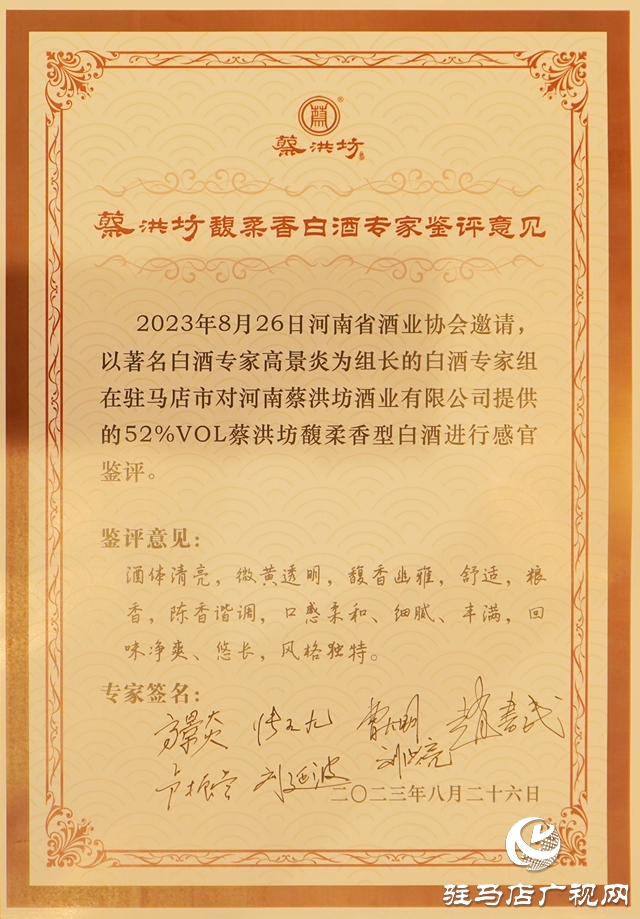 蔡洪坊
蔡洪坊馥柔香白酒专家鉴评意见
2023年8月26日河南省酒业协会邀请，
以著名白酒专家高景炎为组长的白酒专家组
在驻马店市对河南蔡洪坊酒业有限公司提供
的52%VOL蔡洪坊馥柔香型白酒进行感官
鉴评。
鉴评意见：
酒体清亮，微黄透明，馥香幽雅，舒适，粮
香，陈香谐调，口感柔和、细腻、丰满，回
味净爽、悠长，风格独特。
专家签名：
高景炎
赵书民
二〇二三年八月二十六日
驻马店广视网